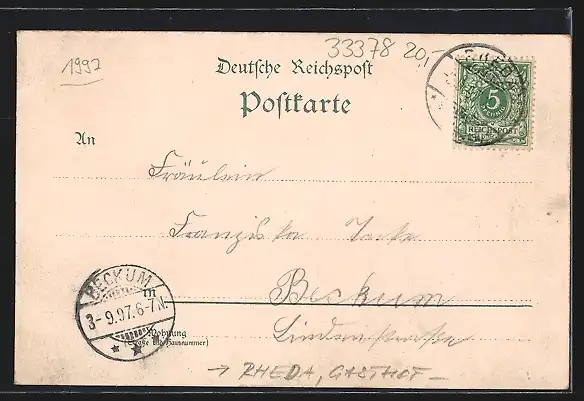 1997
33378 20,-
Deutsche Reichspost
Postkarte
RHEDA
5
REICHSPOST
An
Fräulein
Franziska
Beckum
Lindenstraße
BECKUM
3-9.97.6-7N.
Wohnung
(Straße und Hausnummer)
→ RHEDA, GASTHOF -